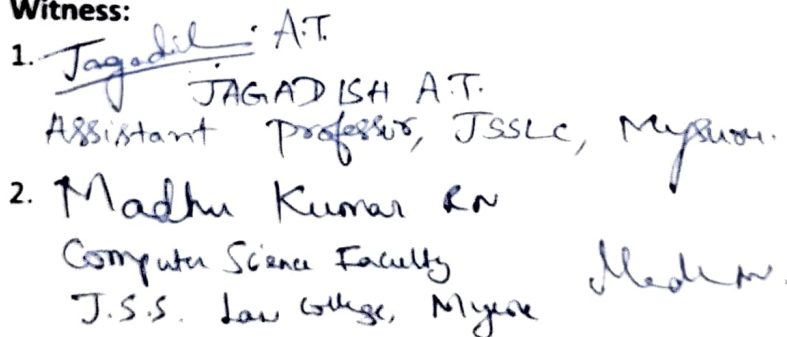 Witness:
1. Jagadish A.T.
JAGADISH A.T.
Assistant Professor, JSSLC, Mysuru.
2. Madhu Kumar RN
Computer Science Faculty
J.S.S. Law College, Mysore